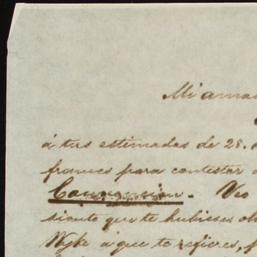 Mi ama
á tus estimadas de 25.
frances para contestar
Convencion. Veo
siento que te hubieses ob
Wyke á que te refieres,